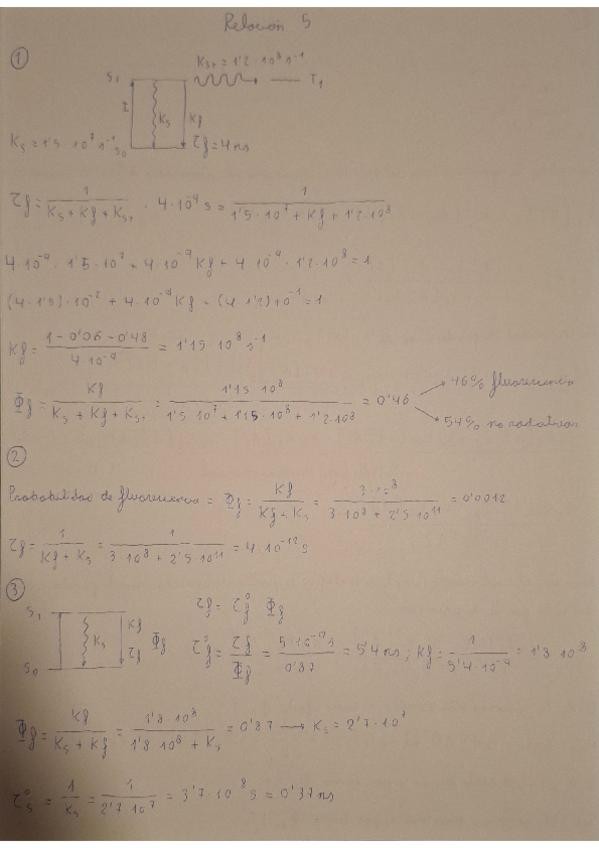 Relación 5
①
K_ST = 1'2 · 10⁸ s⁻¹
S₁ T₁
I K_S K_f
K_S = 1'5 · 10⁷ s⁻¹ S₀ τ_f = 4 ns
τ_f = 1 / (K_S + K_f + K_ST) · 4 · 10⁻⁹ s = 1 / (1'5 · 10⁷ + K_f + 1'2 · 10⁸)
4 · 10⁻⁹ · 1'5 · 10⁷ + 4 · 10⁻⁹ K_f + 4 · 10⁻⁹ · 1'2 · 10⁸ = 1
(4 · 1'5) · 10⁻² + 4 · 10⁻⁹ K_f + (4 · 1'2) 10⁻¹ = 1
K_f = (1 - 0'06 - 0'48) / (4 · 10⁻⁹) = 1'15 · 10⁸ s⁻¹
Φ_f = K_f / (K_S + K_f + K_ST) = 1'15 · 10⁸ / (1'5 · 10⁷ + 1'15 · 10⁸ + 1'2 · 10⁸) = 0'46 → 46% fluorescencia
→ 54% no radiativas
②
Probabilidad de fluorescencia = Φ_f = K_f / (K_f + K_S) = 3 · 10⁸ / (3 · 10⁸ + 2'5 · 10¹¹) = 0'0012
τ_f = 1 / (K_f + K_S) = 1 / (3 · 10⁸ + 2'5 · 10¹¹) = 4 · 10⁻¹² s
③
S₁ K_S K_f τ_f Φ_f S₀
τ_f = τ_f° Φ_f
τ_f° = τ_f / Φ_f = 5 · 10⁻⁹ s / 0'87 = 5'4 ns ; K_f = 1 / (5'4 · 10⁻⁹) = 1'8 · 10⁸
Φ_f = K_f / (K_S + K_f) = 1'8 · 10⁸ / (1'8 · 10⁸ + K_S) = 0'87 → K_S = 2'7 · 10⁷
τ_S° = 1 / K_S = 1 / (2'7 · 10⁷) = 3'7 · 10⁻⁸ s = 0'37 ns